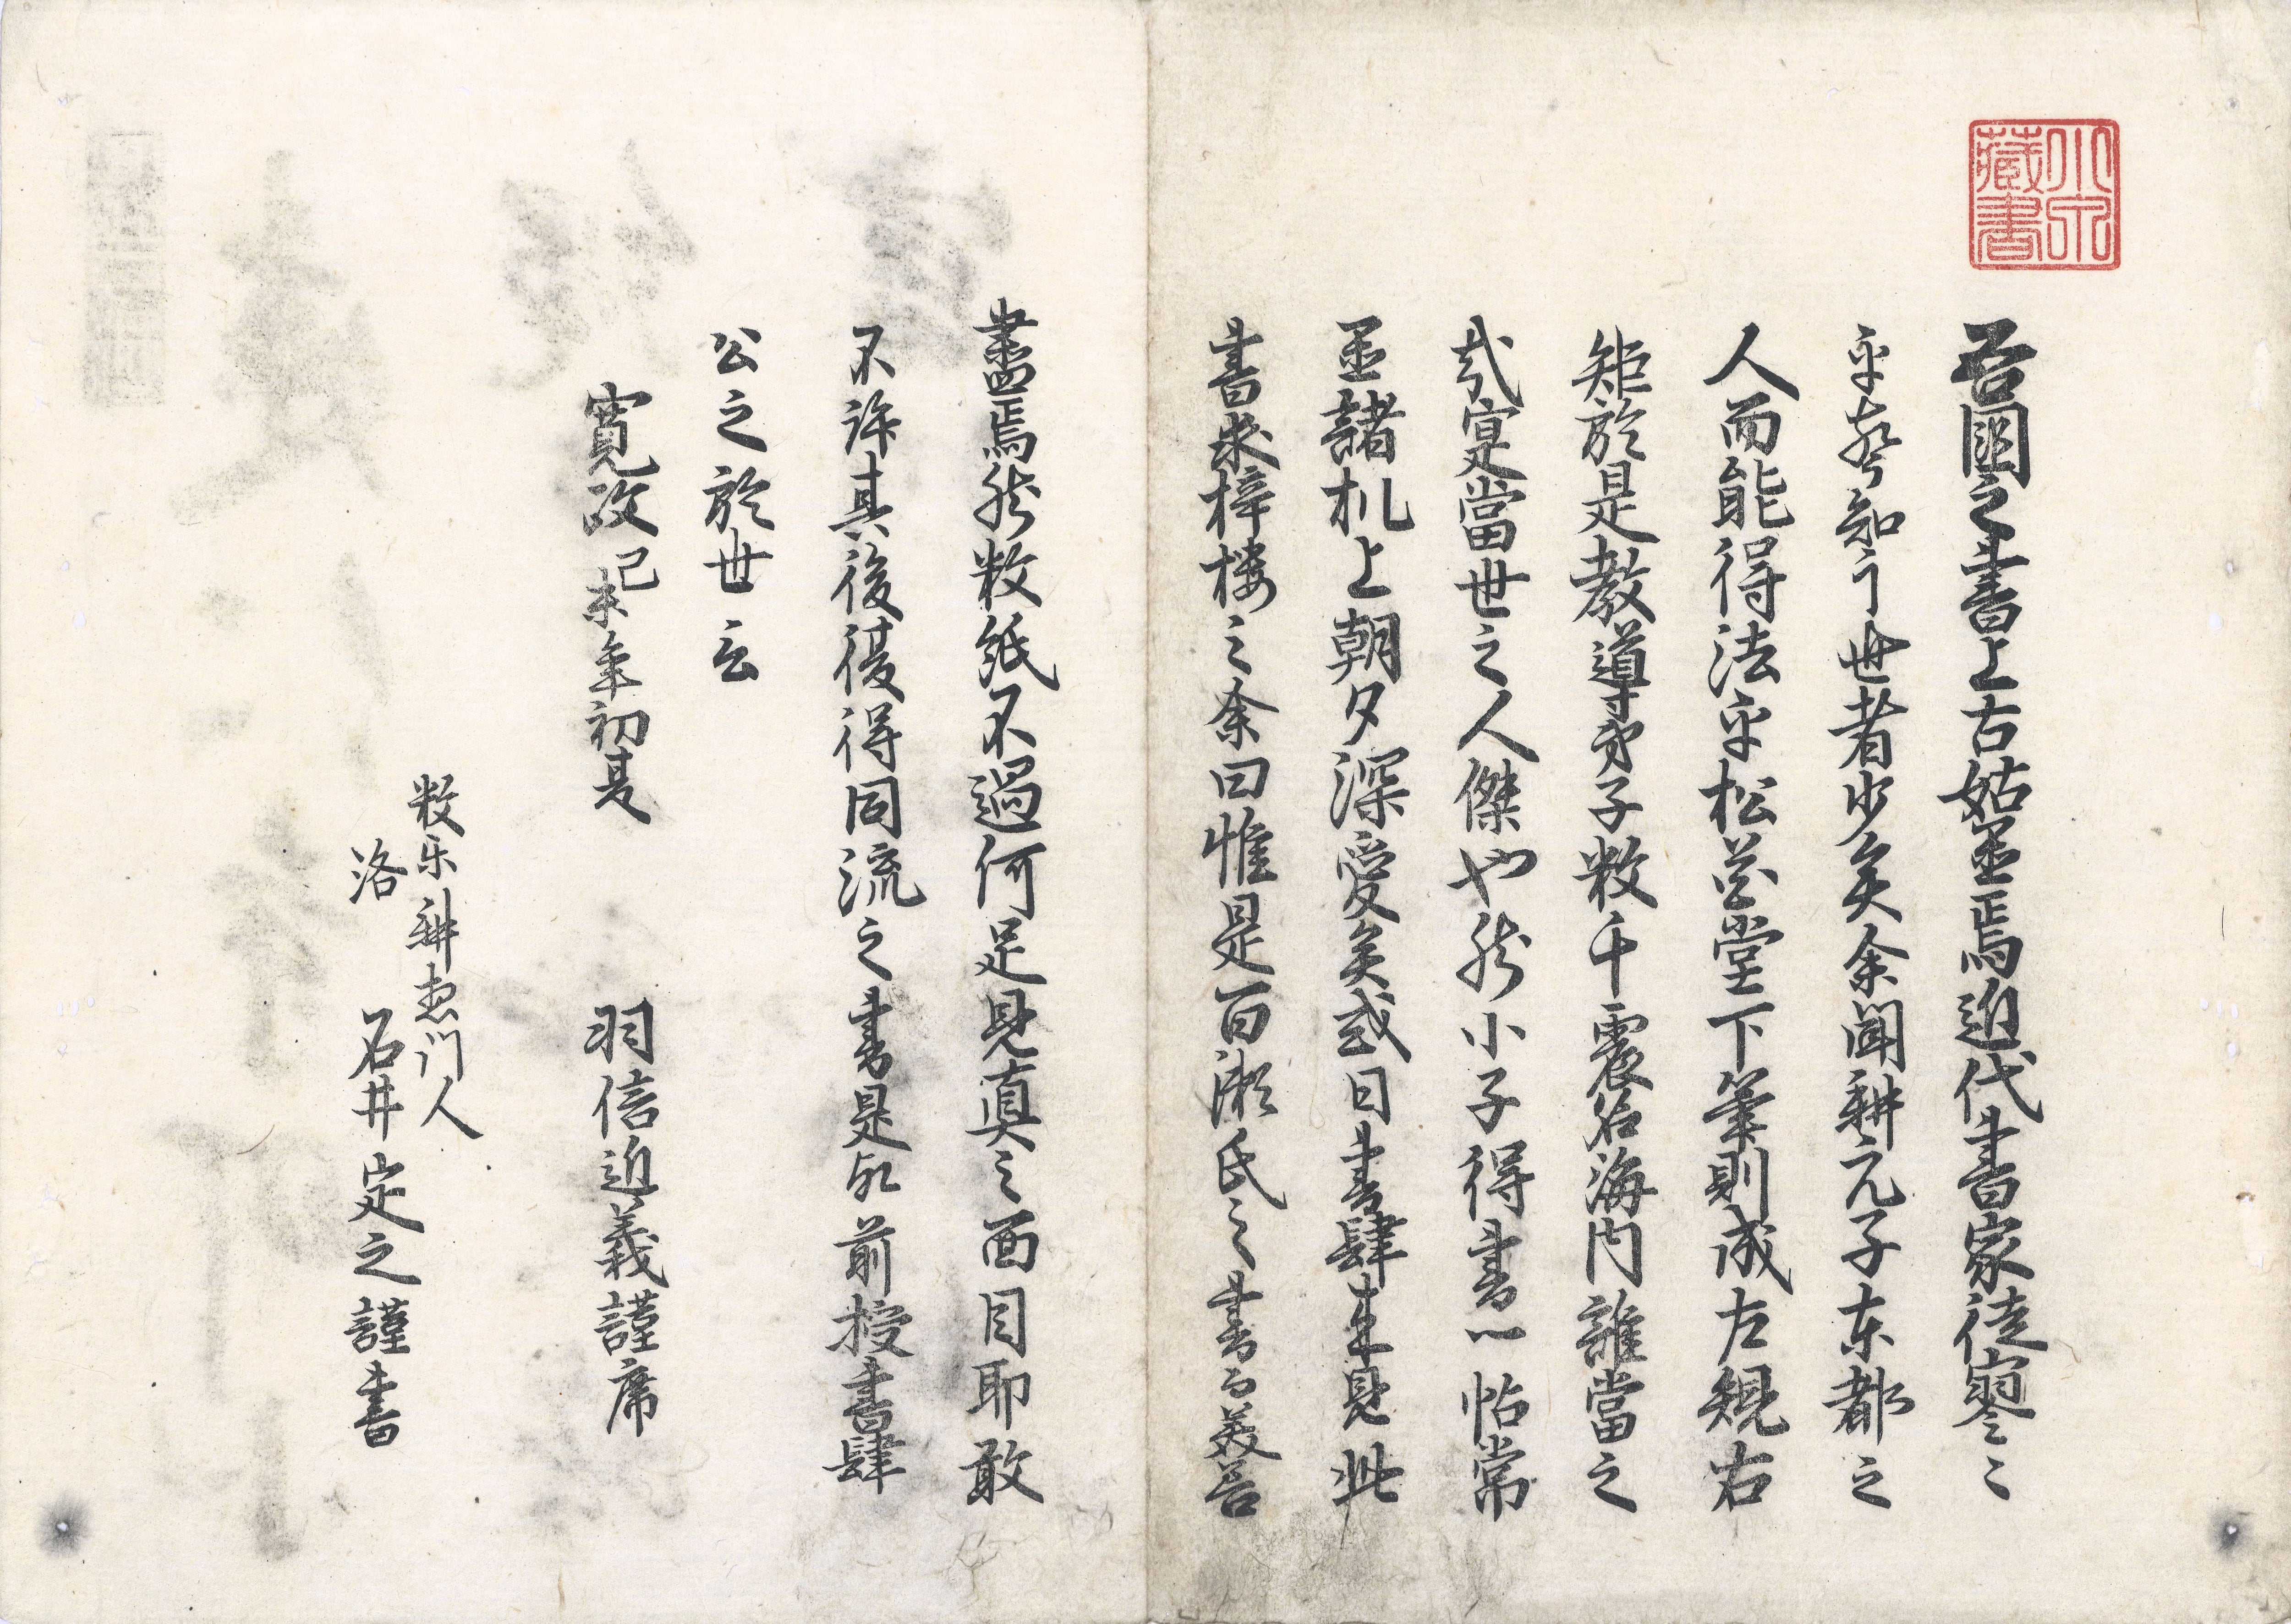 小泉藏書
吾國之書上古姑置焉近代書家徒寥〻
乎声知于世者少矣余聞耕元子东都之
人而能得法乎松花堂下筆則成左規右
矩於是教導弟子数千震名海内誰當之
哉寔當世之人傑也然小子得書一帖常
置諸机上朝夕深愛矣或日書肆来見此
書求梓樓之余曰惟是百瀬氏之書而美善
盡焉然数紙不過何足見真之面目耶敢
不許其後復得同流之書是以前授書肆
公之於世云
寛政己未年初夏 羽信近義謹席
数乐耕恵门人
洛 石井定之謹書